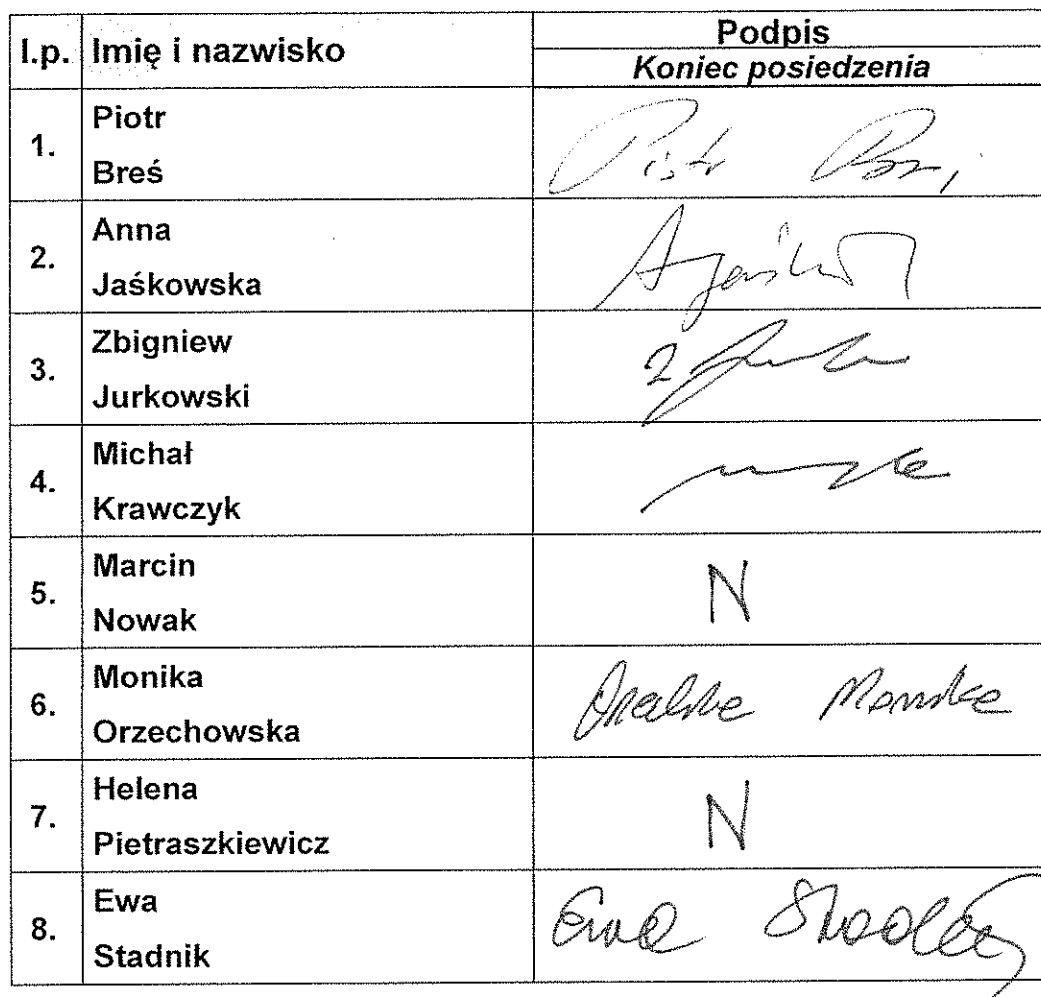 l.p. Imię i nazwisko Podpis
Koniec posiedzenia
1. Piotr
Breś
Piotr
2. Anna
Jaśkowska
3. Zbigniew
Jurkowski
4. Michał
Krawczyk
5. Marcin
Nowak
N
6. Monika
Orzechowska
Monika
7. Helena
Pietraszkiewicz
N
8. Ewa
Stadnik
Ewa Stadnik